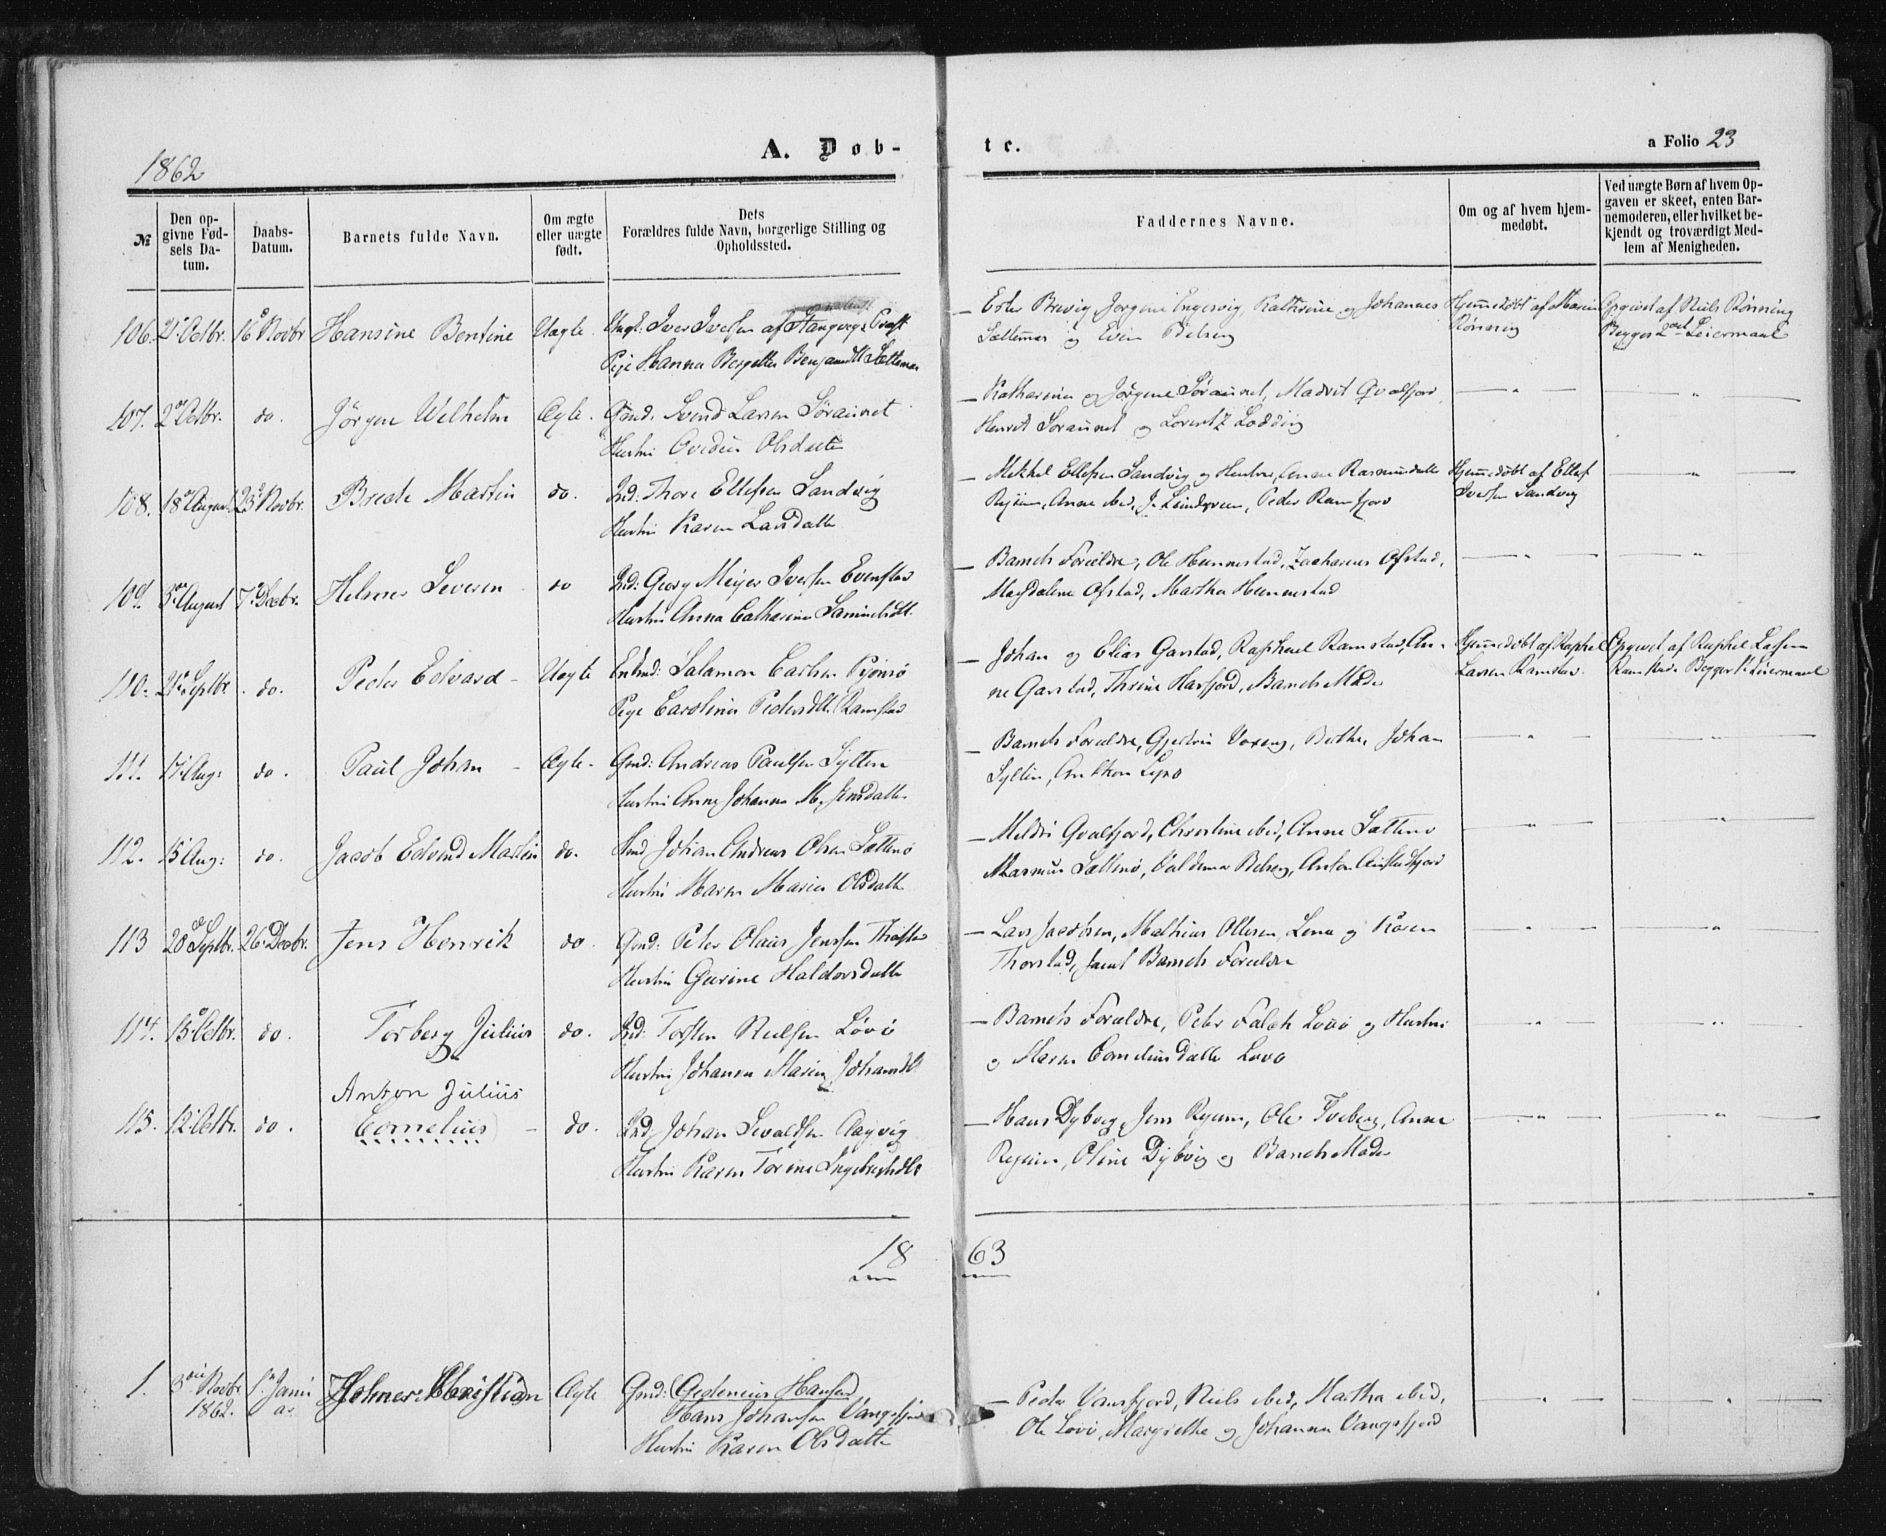 1862
A. Døb-
te.
a Folio 23
№
Den opgivne Fødsels Datum.
Daabs-Datum.
Barnets fulde Navn.
Om ægte eller uægte født.
Dets Forældres fulde Navn, borgerlige Stilling og Opholdssted.
Faddernes Navne.
Om og af hvem hjemmedøbt.
Ved uægte Børn af hvem Opgaven er skeet, enten Barnemoderen, eller hvilket bekjendt og troværdigt Medlem af Menigheden.
106. 21 Octbr. 16 Novbr. Hansine Bentine Uægte Ungk. Iver Iversen af Stangvigs Præst
Pige Hanna Bergette Benjamindtt. Sættemoe
Ester Brevig Jørgine Engesvig, Kathrine og Johannes
Sættemoe og Even Belsvig
Hjemmedøbt af Maren
Rønning
Opgivet af Niels Rønning
Begges Leiermaal
107. 2 Octbr. do. Jörgen Wilhelm Ægte. Gmd. Svend Larsen Söraunet
Hustru Ovedia Olsdatter
Katharina og Jörgine Söraunet, Madvit Qvalfjord
Henrik Soraunet og Lorentz Lodding
108. 18 August 23 Novbr. Breate Martin do. Ind. Thore Ellefsen Sandvig
Hustru Karen Larsdatter
Mikkel Ellefsen Sandvig og Hustru, Anne Rasmusdatter
Ryjum, Anne ibid, J. Lindgreen, Peder Ramfjord
Hjemmedøbt af Ellef
Iversen Sandvig
109. 3 August 7 Decbr. Helmer Severin do Ind: Georg Meyer Iversen Evenstad
Hustru Anna Catharina Samuelsdtt.
Barnets Forældre, Ole Hunnestad, Zacharias Ofstad,
Magdalena Ofstad, Martha Hunnestad
110. 21 Septbr. do. Peder Edvard Uægte Enkmd: Salamon Carlsen
Pige Carolina Pedersdtt. Ramstad
Johan og Elias Garstad, Raphael Ramstad, An-
ne Garstad, Thrine Hafsfjord, Barnets Moder
Hjemmedøbt af Raphel
Larsen Ramstad
Opgivet af Raphel Larsen
Ramstad. Begges 1 Leiermaal
111. 17 Aug: do. Paul Johan Ægte. Gmd: Andreas Paulsen Sylten
Hustru Anne Johanna M. Jensdatter
Barnets Forældre, Gjertrui Voxeng, Berthe, Johan
Syltin, Anthon Lysø
112. 15 Aug: do. Jacob Edvind Martin do. Smd Johan Andreas Olsen Sættemo
Hustru Maren Maria Olsdatter
Meldri Qvalfjord, Christine ibid, Anne Sættemo
Rasmus Sættemo, Valdemar Belsvig, Anton
113 28 Septbr. 26 Decbr. Jens Henrik do. Gmd: Peter Olaus Jenssen Thorstad
Hustru Gurine Haldorsdatter
Lars Jacobsen, Mathias Ottesen, Lena og Karen
Thorstad, samt Barnets Forældre
114. 15 Octbr. do. Torberg Julius do. Ind: Torsten Nielsen Lövö
Hustru Johanna Maria Johansdtt
Barnets Forældre, Peter Falch Lovö og Hustru
og Maren Corneliusdatter Lovö
Anton Julius
115. 12 Octbr. do. Cornelius do. Ind. Johan Sivaldsen Aagvig
Hustru Karen Torine Ingebrigtsdtt
Hans Dybvig, Jens Ryjum, Ole Tviberg, Anne
Ryjum, Oline Dybvig og Barnets Moder
1863
1. 3 Novbr 1862. 1 Janu ar Helmer Christian Ægte Gmd: (Gedenius Hansen
Hans Johansen Vangsfjord
Hustru Karen Olsdatter
Peder Vansfjord, Niels ibid, Martha ibid,
Ole Lovö, Margrethe og Johanna Vangsfjord